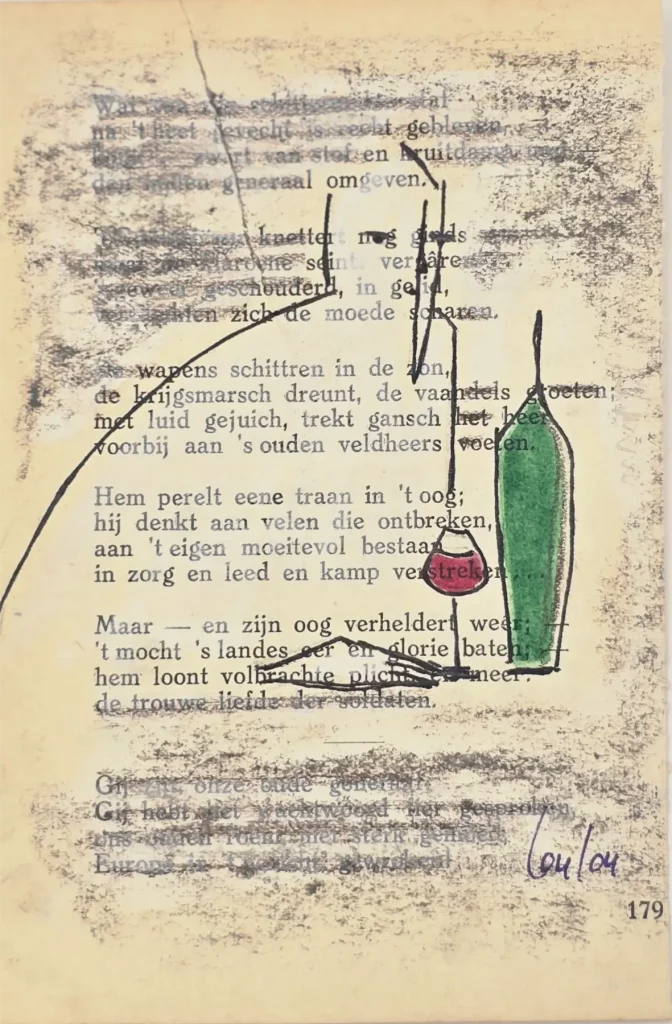 na 't heet gevecht is recht gebleven,
zwart van stof en kruitdamp
den ouden generaal omgeven.
knettert nog ginds
seint vergâren
geweer geschouderd, in gelid,
zich de moede scharen.
De wapens schittren in de zon,
de krijgsmarsch dreunt, de vaandels groeten;
met luid gejuich, trekt gansch het heer
voorbij aan 's ouden veldheers voeten.
Hem perelt eene traan in 't oog;
hij denkt aan velen die ontbreken,
aan 't eigen moeitevol bestaan
in zorg en leed en kamp verstreken...
Maar — en zijn oog verheldert weer; —
't mocht 's landes eer en glorie baten; —
hem loont volbrachte plicht en meer:
de trouwe liefde der soldaten.
Gij zijt onze oude generaal
Gij hebt het wachtwoord hier gesproken,
Europa in
Lou/Lou
179